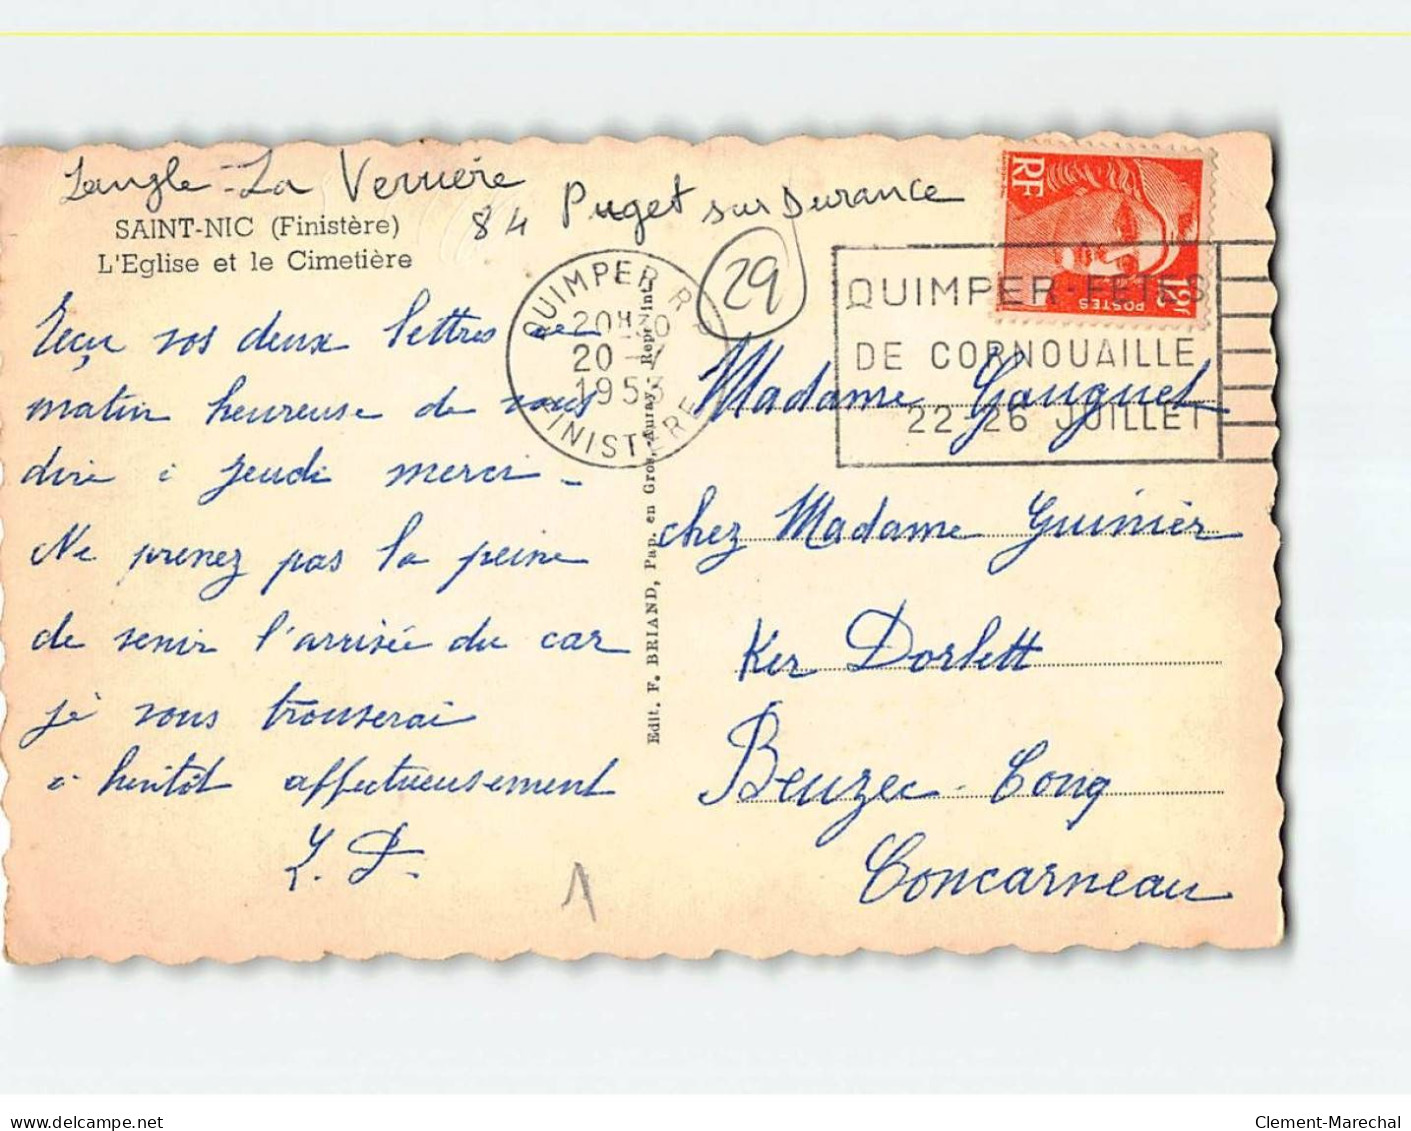 Langle - La Verrière
84 Puget sur Durance
SAINT-NIC (Finistère)
L'Eglise et le Cimetière
29
QUIMPER R.P.
20H30
20-V
1953
FINISTERE
QUIMPER-FETES
DE CORNOUAILLE
22-26 JUILLET
RF
POSTES
Reçu vos deux lettres ce
matin heureuse de vous
dire à jeudi merci -
Ne prenez pas la peine
de venir l'arrivée du car
je vous trouverai
à bientôt affectueusement
Y. D.
1
Edit. F. BRIAND, Pap. en Gros, Auray. Repr. int.
Madame Gauguet
chez Madame Guinier
Ker Dorlett
Beuzec-Conq
Concarneau
delcampe.net
Clement-Marechal